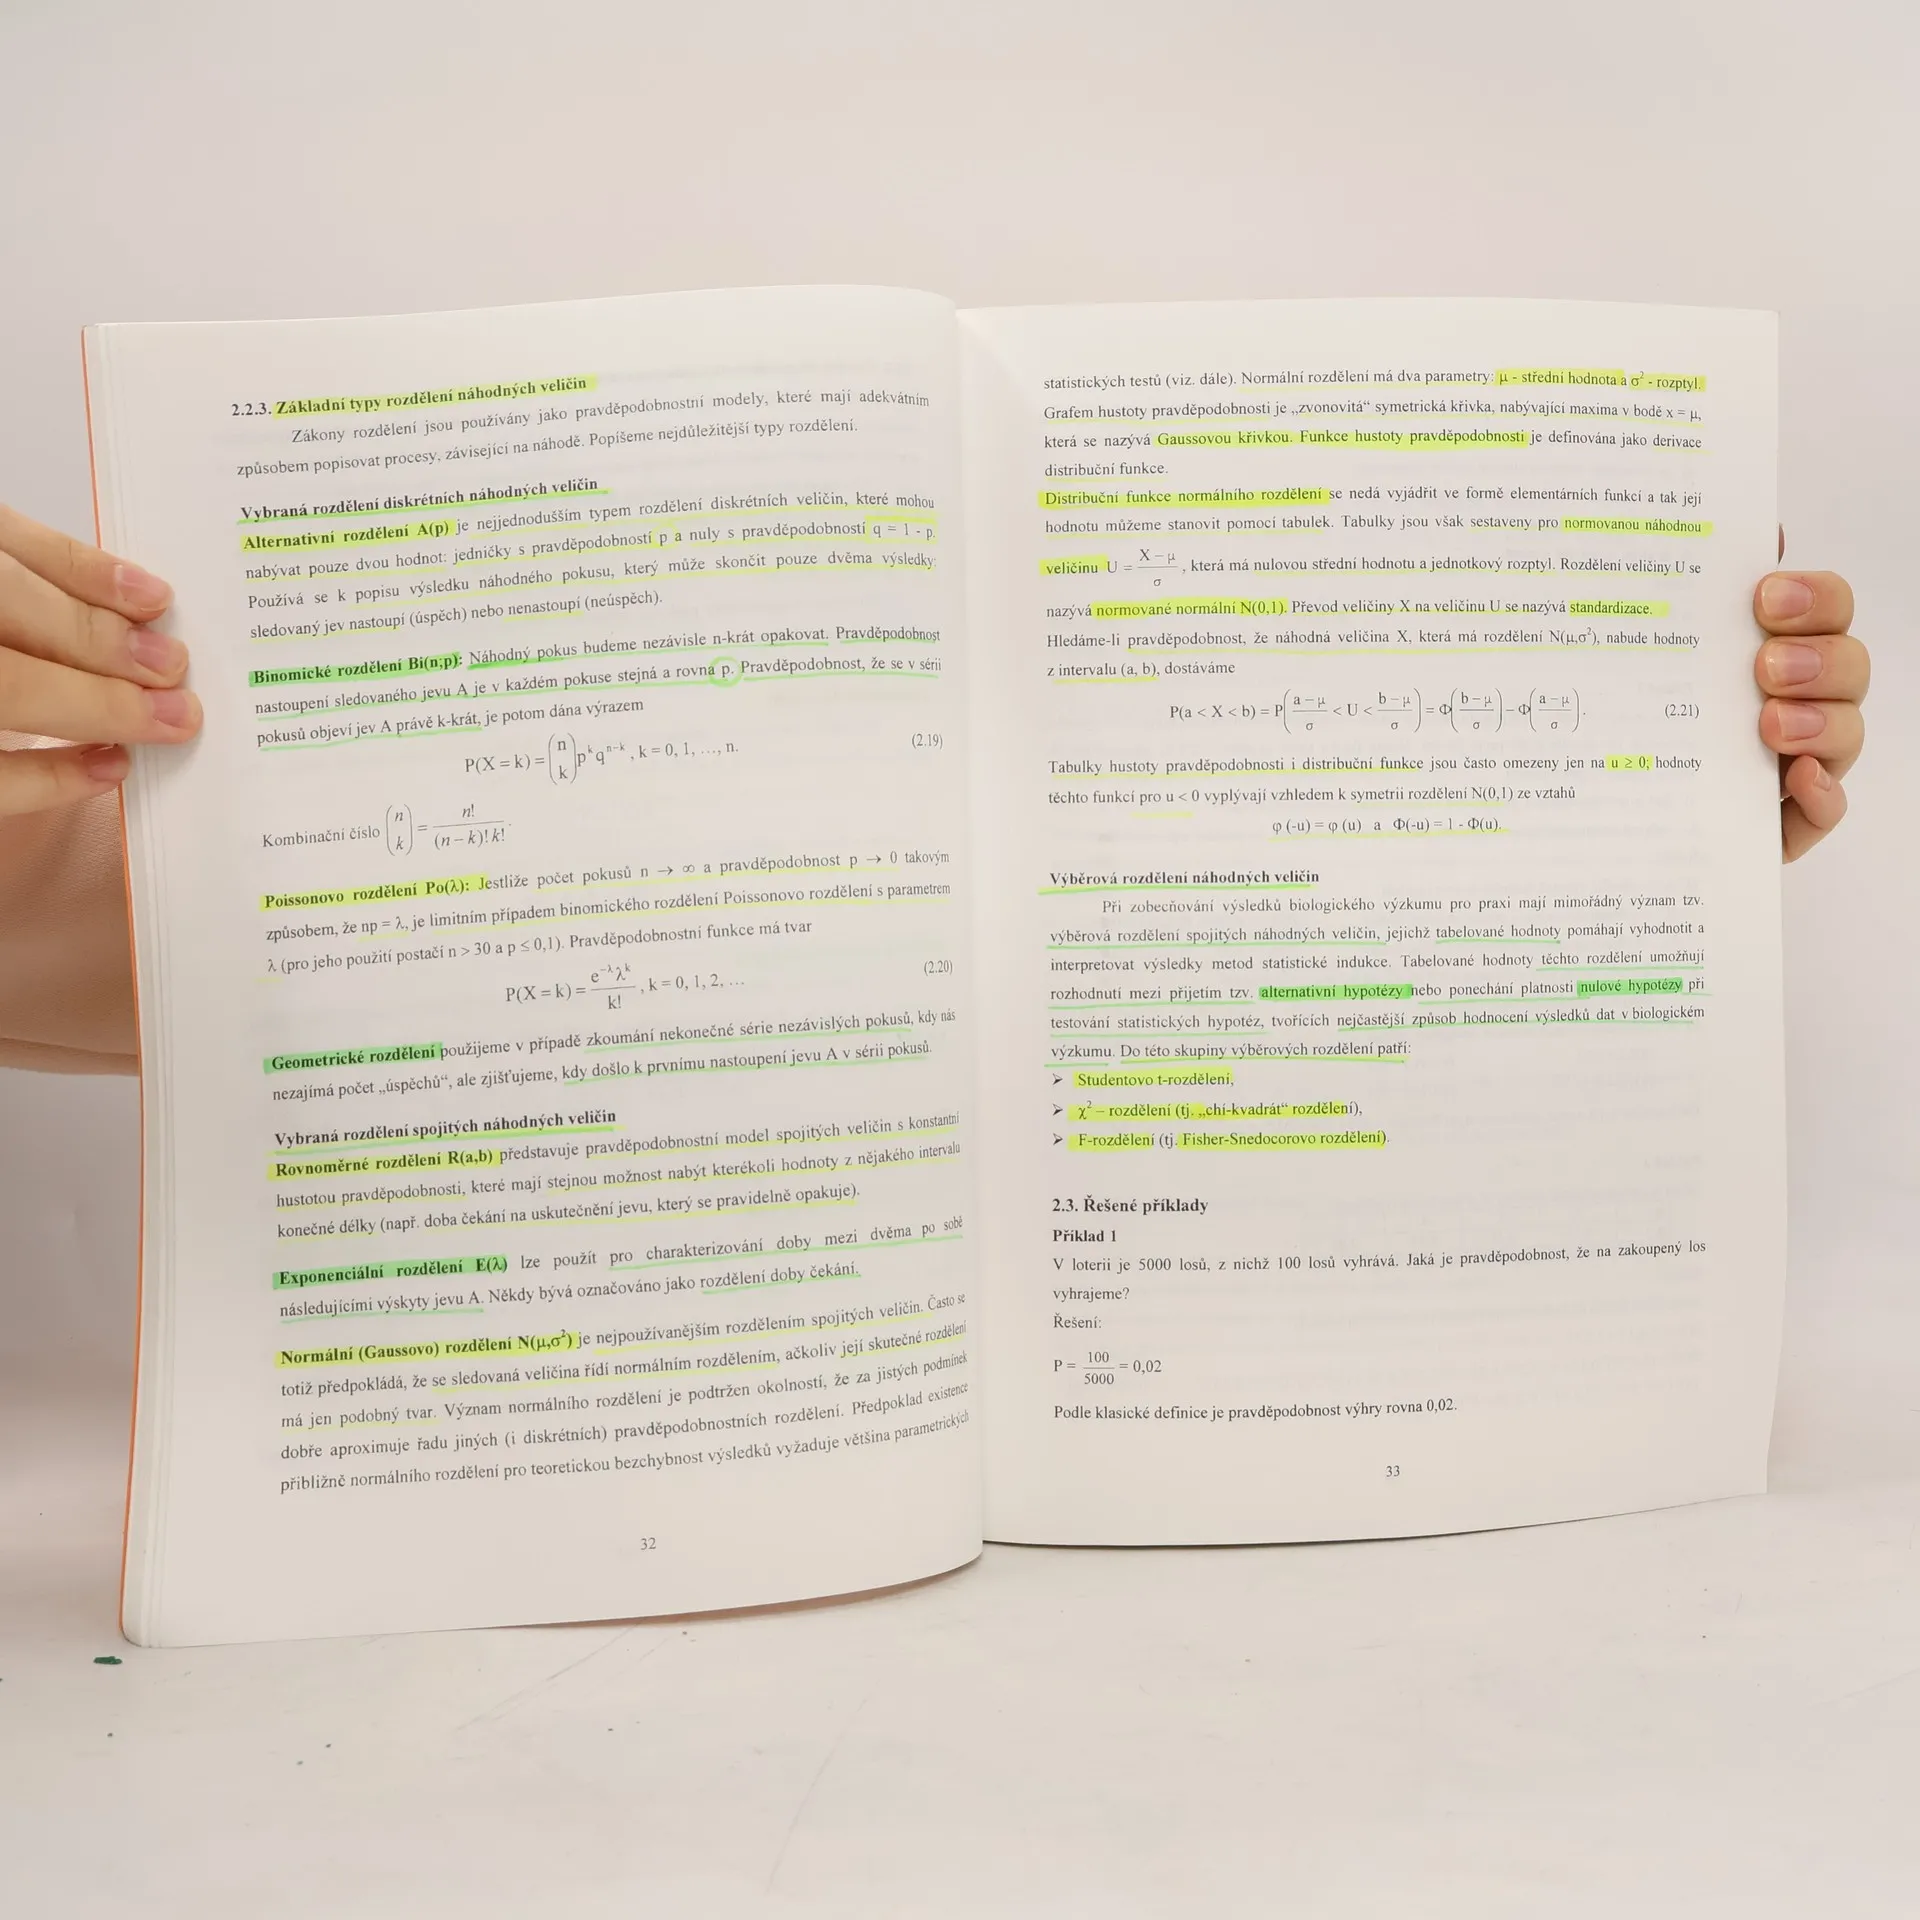 2.2.3. Základní typy rozdělení náhodných veličin
Zákony rozdělení jsou používány jako pravděpodobnostní modely, které mají adekvátním
způsobem popisovat procesy, závisející na náhodě. Popíšeme nejdůležitější typy rozdělení.
Vybraná rozdělení diskrétních náhodných veličin
Alternativní rozdělení A(p) je nejjednodušším typem rozdělení diskrétních veličin, které mohou
nabývat pouze dvou hodnot: jedničky s pravděpodobností p a nuly s pravděpodobností q = 1 - p.
Používá se k popisu výsledku náhodného pokusu, který může skončit pouze dvěma výsledky:
sledovaný jev nastoupí (úspěch) nebo nenastoupí (neúspěch).
Binomické rozdělení Bi(n;p): Náhodný pokus budeme nezávisle n-krát opakovat. Pravděpodobnost
nastoupení sledovaného jevu A je v každém pokuse stejná a rovna p. Pravděpodobnost, že se v sérii
pokusů objeví jev A právě k-krát, je potom dána výrazem
P(X = k) = (n k) p^k q^{n-k}, k = 0, 1, …, n. (2.19)
Kombinační číslo (n k) = n! / (n – k)! k! .
Poissonovo rozdělení Po(λ): Jestliže počet pokusů n → ∞ a pravděpodobnost p → 0 takovým
způsobem, že np = λ, je limitním případem binomického rozdělení Poissonovo rozdělení s parametrem
λ (pro jeho použití postačí n > 30 a p ≤ 0,1). Pravděpodobnostní funkce má tvar
P(X = k) = e^{-λ} λ^k / k! , k = 0, 1, 2, … (2.20)
Geometrické rozdělení použijeme v případě zkoumání nekonečné série nezávislých pokusů, kdy nás
nezajímá počet „úspěchů“, ale zjišťujeme, kdy došlo k prvnímu nastoupení jevu A v sérii pokusů.
Vybraná rozdělení spojitých náhodných veličin
Rovnoměrné rozdělení R(a,b) představuje pravděpodobnostní model spojitých veličin s konstantní
hustotou pravděpodobnosti, které mají stejnou možnost nabýt kterékoli hodnoty z nějakého intervalu
konečné délky (např. doba čekání na uskutečnění jevu, který se pravidelně opakuje).
Exponenciální rozdělení E(λ) lze použít pro charakterizování doby mezi dvěma po sobě
následujícími výskyty jevu A. Někdy bývá označováno jako rozdělení doby čekání.
Normální (Gaussovo) rozdělení N(μ,σ²) je nejpoužívanějším rozdělením spojitých veličin. Často se
totiž předpokládá, že se sledovaná veličina řídí normálním rozdělením, ačkoliv její skutečné rozdělení
má jen podobný tvar. Význam normálního rozdělení je podtržen okolností, že za jistých podmínek
dobře aproximuje řadu jiných (i diskrétních) pravděpodobnostních rozdělení. Předpoklad existence
přibližně normálního rozdělení pro teoretickou bezchybnost výsledků vyžaduje většina parametrických
32
statistických testů (viz. dále). Normální rozdělení má dva parametry: μ - střední hodnota a σ² - rozptyl.
Grafem hustoty pravděpodobnosti je „zvonovitá“ symetrická křivka, nabývající maxima v bodě x = μ,
která se nazývá Gaussovou křivkou. Funkce hustoty pravděpodobnosti je definována jako derivace
distribuční funkce.
Distribuční funkce normálního rozdělení se nedá vyjádřit ve formě elementárních funkcí a tak její
hodnotu můžeme stanovit pomocí tabulek. Tabulky jsou však sestaveny pro normovanou náhodnou
veličinu U = (X – μ) / σ , která má nulovou střední hodnotu a jednotkový rozptyl. Rozdělení veličiny U se
nazývá normované normální N(0,1). Převod veličiny X na veličinu U se nazývá standardizace.
Hledáme-li pravděpodobnost, že náhodná veličina X, která má rozdělení N(μ,σ²), nabude hodnoty
z intervalu (a, b), dostáváme
P(a < X < b) = P((a – μ)/σ < U < (b – μ)/σ) = Φ((b – μ)/σ) – Φ((a – μ)/σ). (2.21)
Tabulky hustoty pravděpodobnosti i distribuční funkce jsou často omezeny jen na u ≥ 0; hodnoty
těchto funkcí pro u < 0 vyplývají vzhledem k symetrii rozdělení N(0,1) ze vztahů
φ (-u) = φ (u) a Φ(-u) = 1 - Φ(u).
Výběrová rozdělení náhodných veličin
Při zobecňování výsledků biologického výzkumu pro praxi mají mimořádný význam tzv.
výběrová rozdělení spojitých náhodných veličin, jejichž tabelované hodnoty pomáhají vyhodnotit a
interpretovat výsledky metod statistické indukce. Tabelované hodnoty těchto rozdělení umožňují
rozhodnutí mezi přijetím tzv. alternativní hypotézy nebo ponechání platnosti nulové hypotézy při
testování statistických hypotéz, tvořících nejčastější způsob hodnocení výsledků dat v biologickém
výzkumu. Do této skupiny výběrových rozdělení patří:
➢ Studentovo t-rozdělení,
➢ χ² – rozdělení (tj. „chí-kvadrát“ rozdělení),
➢ F-rozdělení (tj. Fisher-Snedocorovo rozdělení).
2.3. Řešené příklady
Příklad 1
V loterii je 5000 losů, z nichž 100 losů vyhrává. Jaká je pravděpodobnost, že na zakoupený los
vyhrajeme?
Řešení:
P = 100 / 5000 = 0,02
Podle klasické definice je pravděpodobnost výhry rovna 0,02.
33